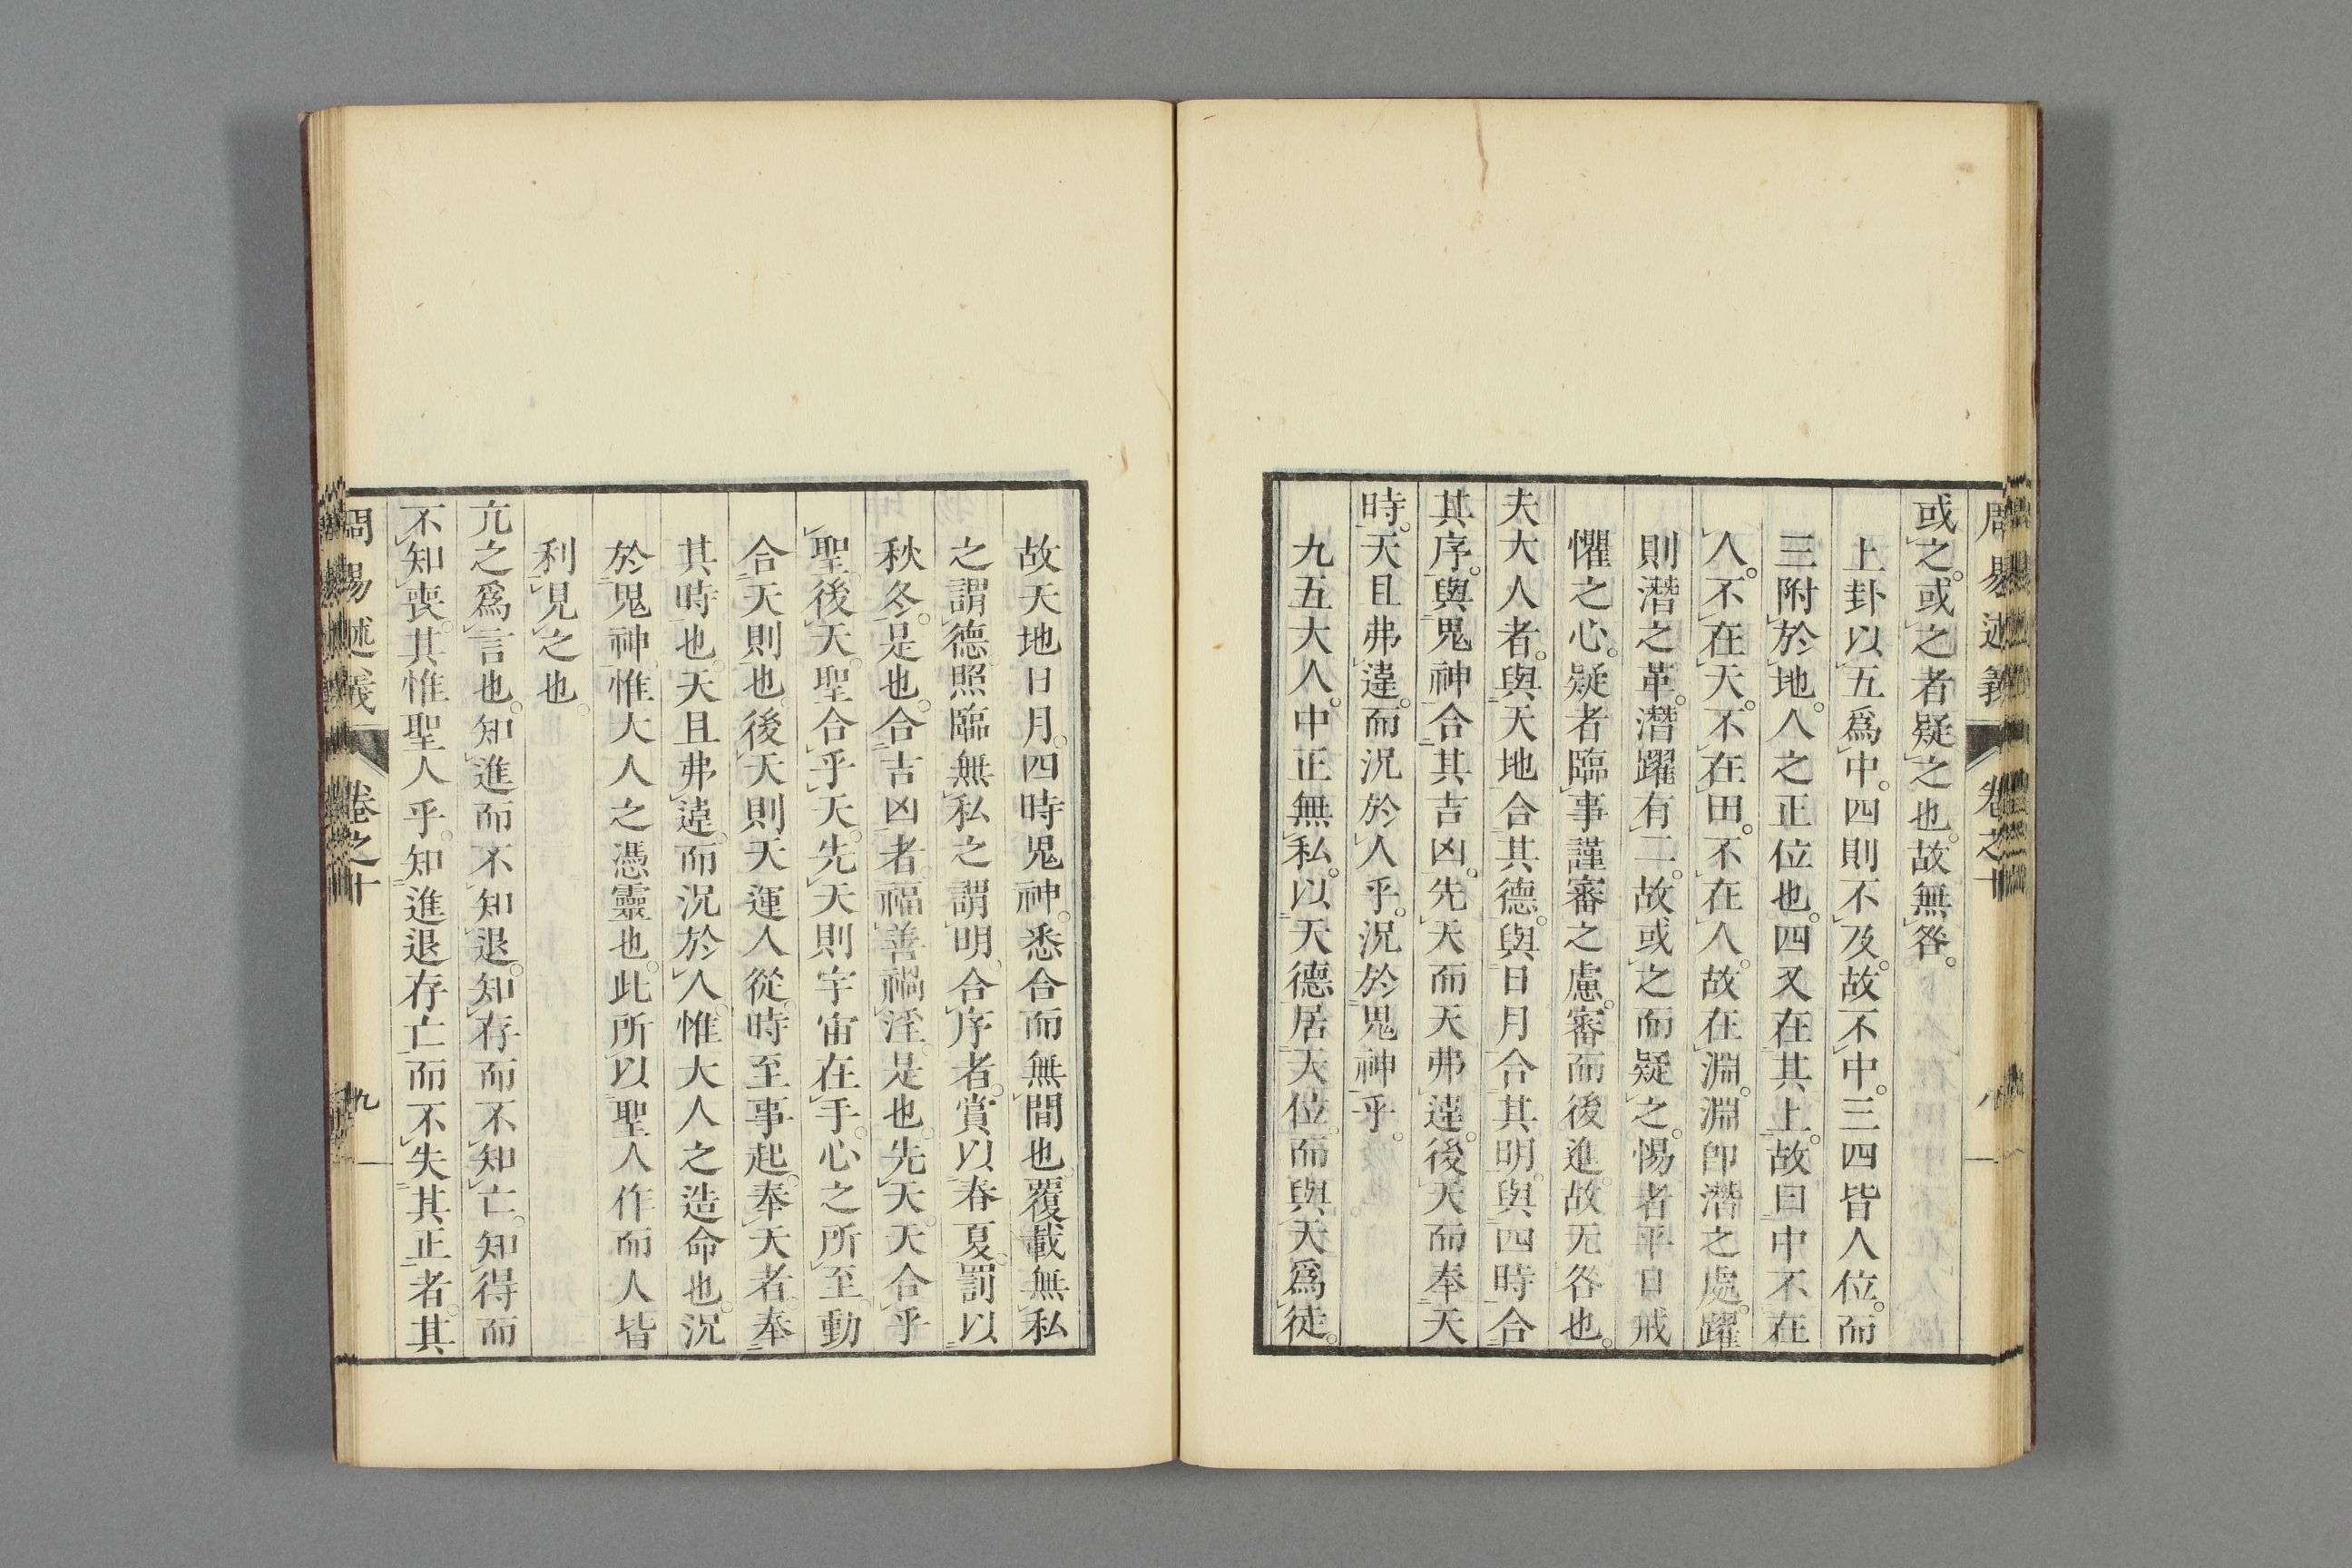 周易述義 卷之十 八
或之。或之者疑之也。故無咎。
上卦以五爲中。四則不及。故不中。三四皆人位。而
三附於地。人之正位也。四又在其上。故曰中不在
人。不在天。不在田。不在人。故在淵。淵卽潛之處。躍
則潛之革。潛躍有二。故或之而疑之。惕者平日戒
懼之心。疑者臨事謹審之慮。審而後進。故无咎也。
夫大人者。與天地合其德。與日月合其明。與四時合
其序。與鬼神合其吉凶。先天而天弗違。後天而奉天
時。天且弗違。而況於人乎。況於鬼神乎。
九五大人。中正無私。以天德居天位。而與天爲徒。
故天地日月。四時鬼神。悉合而無間也。覆載無私
之謂德。照臨無私之謂明。合序者。賞以春夏。罰以
秋冬。是也。合吉凶者。福善禍淫。是也。先天。天合乎
聖。後天。聖合乎天。先天則宇宙在手。心之所至。動
合天則也。後天則天運人從。時至事起。奉天者。奉
其時也。天且弗違。而況於人。惟大人之造命也。況
於鬼神。惟大人之憑靈也。此所以聖人作而人皆
利見之也。
亢之爲言也。知進而不知退。知存而不知亡。知得而
不知喪。其惟聖人乎。知進退存亡而不失其正者。其
周易述義 卷之十 九